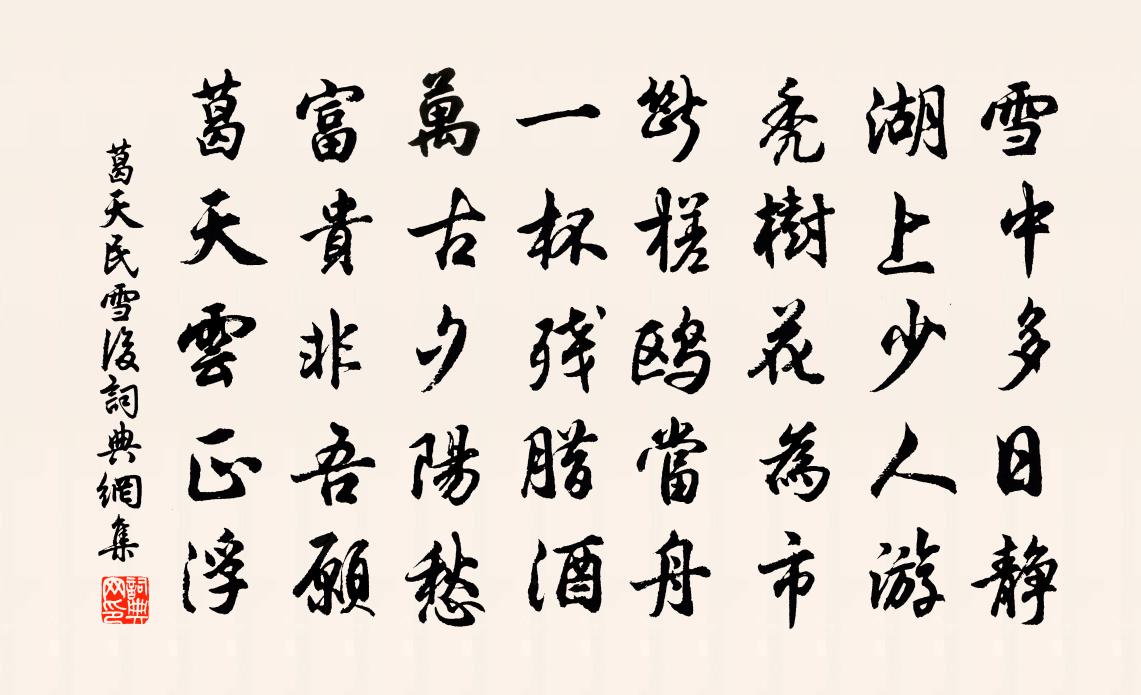 雪中多日静
湖上少人游
秃樹花為市
斷槎鸥當舟
一杯残腊酒
萬古夕陽愁
富貴非吾願
葛天雲正浮
葛天民雪後詞典網集
詞典网印